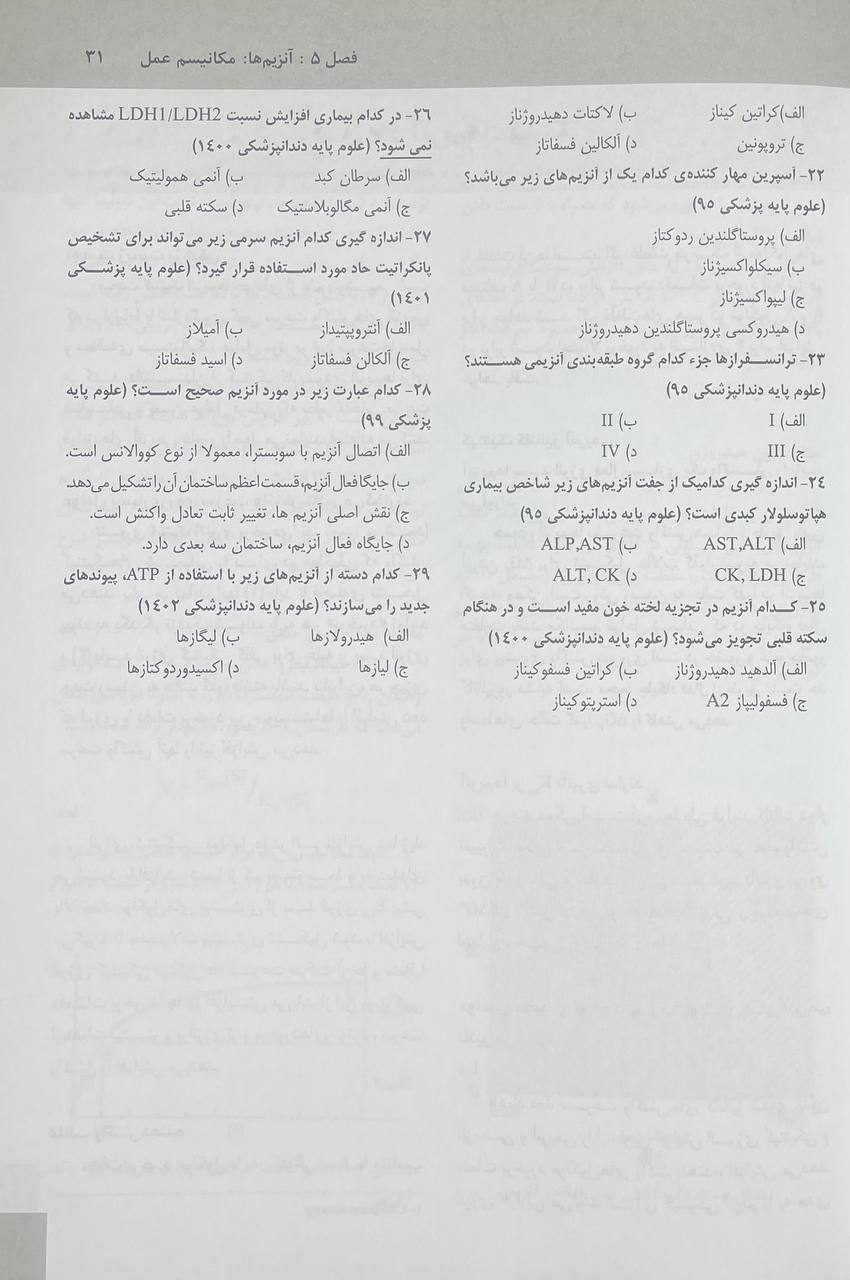 فصل ۵ : آنزیم‌ها: مکانیسم عمل ۳۱
الف)کراتین کیناز ب) لاکتات دهیدروژناز
ج) تروپونین د) آلکالین فسفاتاز
۲۲- آسپرین مهار کننده‌ی کدام یک از آنزیم‌های زیر می‌باشد؟
(علوم پایه پزشکی ۹۵)
الف) پروستاگلندین ردوکتاز
ب) سیکلواکسیژناز
ج) لیپواکسیژناز
د) هیدروکسی پروستاگلندین دهیدروژناز
۲۳- ترانسفرازها جزء کدام گروه طبقه‌بندی آنزیمی هستند؟
(علوم پایه دندانپزشکی ۹۵)
الف) I ب) II
ج) III د) IV
۲٤- اندازه گیری کدامیک از جفت آنزیم‌های زیر شاخص بیماری
هپاتوسلولار کبدی است؟ (علوم پایه دندانپزشکی ۹۵)
الف) AST,ALT ب) ALP,AST
ج) CK, LDH د) ALT, CK
۲۵- کدام آنزیم در تجزیه لخته خون مفید است و در هنگام
سکته قلبی تجویز می‌شود؟ (علوم پایه دندانپزشکی ۱٤۰۰)
الف) آلدهید دهیدروژناز ب) کراتین فسفوکیناز
ج) فسفولیپاز A2 د) استرپتوکیناز
۲٦- در کدام بیماری افزایش نسبت LDH1/LDH2 مشاهده
نمی شود؟ (علوم پایه دندانپزشکی ۱٤۰۰)
الف) سرطان کبد ب) آنمی همولیتیک
ج) آنمی مگالوبلاستیک د) سکته قلبی
۲۷- اندازه گیری کدام آنزیم سرمی زیر می‌تواند برای تشخیص
پانکراتیت حاد مورد استفاده قرار گیرد؟ (علوم پایه پزشکی
۱٤۰۱)
الف) آنتروپپتیداز ب) آمیلاز
ج) آلکالن فسفاتاز د) اسید فسفاتاز
۲۸- کدام عبارت زیر در مورد آنزیم صحیح است؟ (علوم پایه
پزشکی ۹۹)
الف) اتصال آنزیم با سوبسترا، معمولا از نوع کووالانس است.
ب) جایگاه فعال آنزیم، قسمت اعظم ساختمان آن را تشکیل می‌دهد.
ج) نقش اصلی آنزیم ها، تغییر ثابت تعادل واکنش است.
د) جایگاه فعال آنزیم، ساختمان سه بعدی دارد.
۲۹- کدام دسته از آنزیم‌های زیر با استفاده از ATP، پیوندهای
جدید را می‌سازند؟ (علوم پایه دندانپزشکی ۱٤۰۲)
الف) هیدرولازها ب) لیگازها
ج) لیازها د) اکسیدوردوکتازها